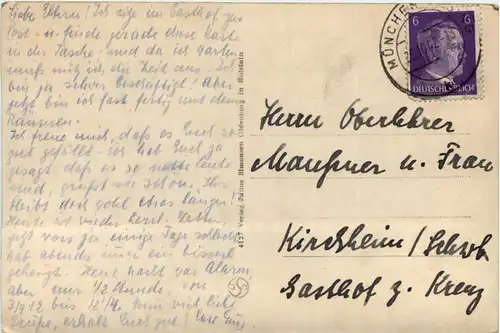 Liebe Eltern! Ich sitze im Gasthof zur
Post - u. finde gerade diese Karte
in der Tasche. Und da ich warten
muß mit die Zeit aus. Ich
bin ja schwer beschäftigt! Aber
jetzt bin ich fast fertig mit dem
Räumen.
Ich freue mich, daß es Euch so
gut gefällt - ich hab Euch ja
gesagt, daß es so nette Leute
sind, grüßt sie schön. Ihr
bleibt doch wohl etwas länger?
Heute ist wieder
jetzt vor einige Tage
hab abends immer ein bissl
geheizt. Heut nacht war Alarm,
aber nur 1/2 Stunde, von
3/4 12 bis 12 1/4. Nun viel liebe
Grüße, erholt Euch gut! Eure
4127 Verlag Julius Simonsen Oldenburg in Holstein
MÜNCHEN
6 6
DEUTSCHES REICH
Herrn Oberlehrer
u. Frau
Kirchheim/Schwb
Gasthof z. Kreuz